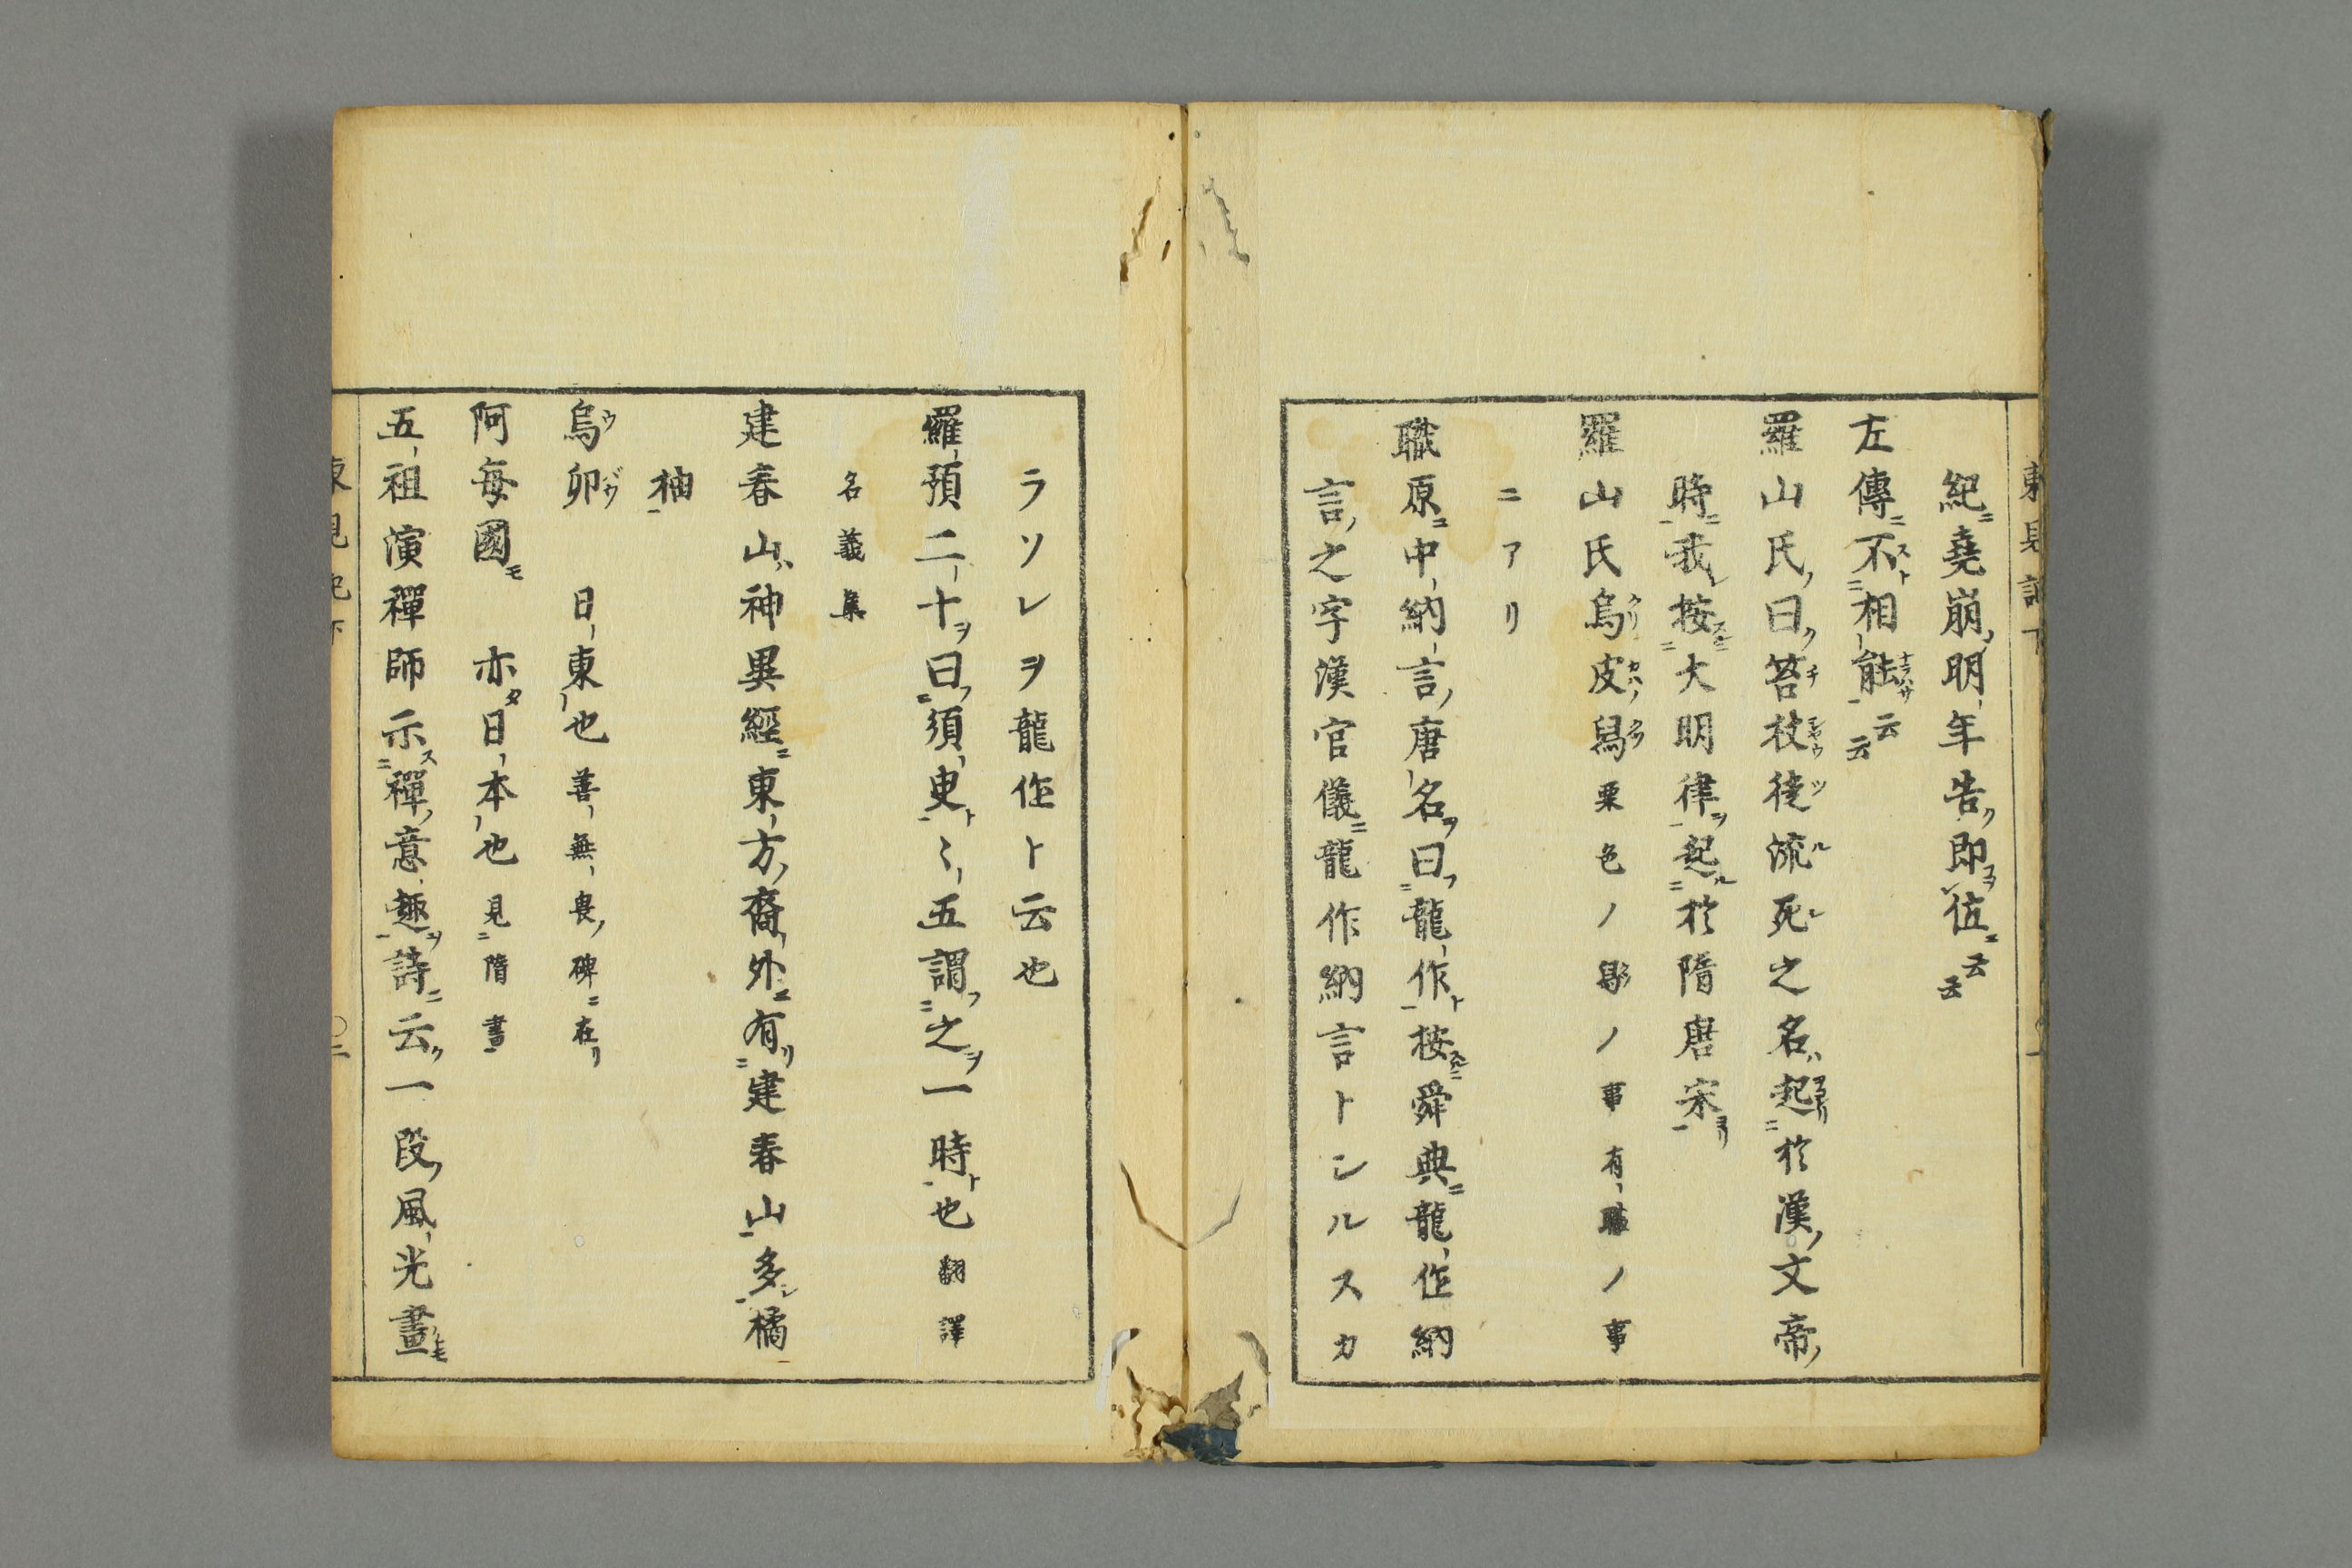 紀堯崩明年告即位云云
左傳不相能云云
羅山氏曰笞杖徒流死之名起於漢文帝
時我按大明律起於隋唐宋
羅山氏烏皮舄栗色ノ事有職ノ事
ニアリ
職原中納言唐名曰龍作按舜典龍作納
言之字漢官儀龍作納言トシルスカ
ラソレヲ龍作ト云也
羅預二十曰須臾〻五謂之一時也翻譯
名義集
建春山神異經東方裔外有建春山多橘
柚
烏卯 日東也善無畏碑在
阿每國 亦日本也見隋書
五祖演禪師示禪意趣詩云一段風光畫